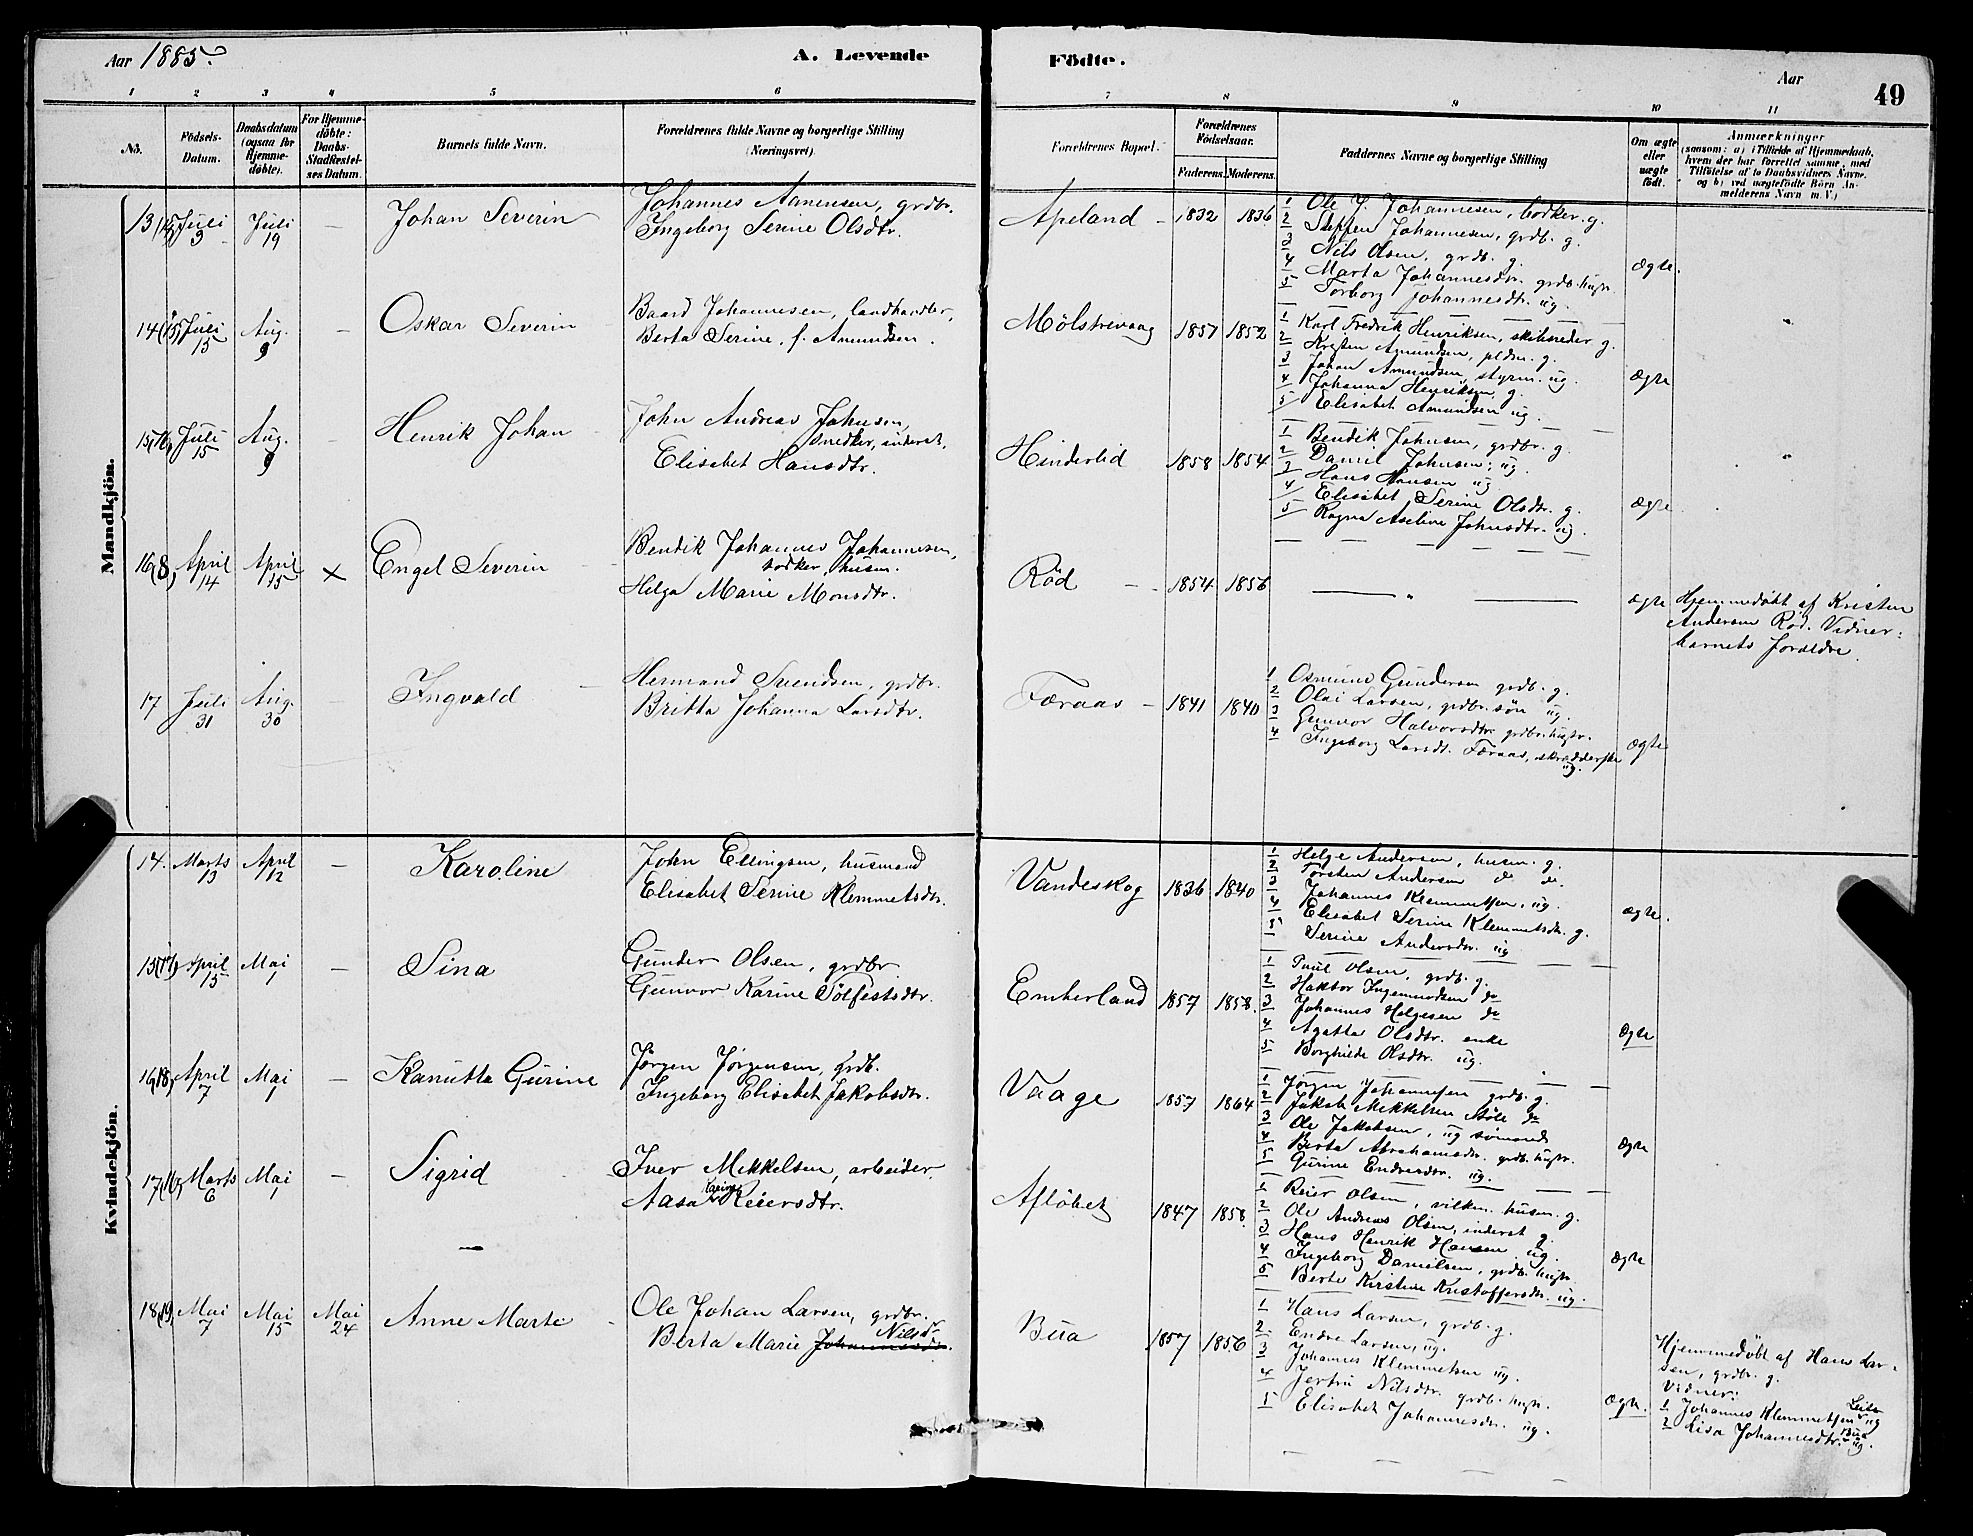 Aar 1885.
A. Levende Födte.
Aar
49
1 2 3 4 5 6 7 8 9 10 11
No. Födsels-Datum. Daabsdatum (ogsaa for Hjemmedøbte). For Hjemmedøbte: Daabs-Stadfæstelses Datum. Barnets fulde Navn. Forældrenes fulde Navne og borgerlige Stilling (Næringsvei). Forældrenes Bopæl. Forældrenes Födselsaar. Faderens. Moderens. Faddernes Navne og borgerlige Stilling Om ægte eller uægte födt. Anmærkninger (saasom: a) i Tilfælde af Hjemmedaab, hvem der har forrettet samme, med Tilföielse af to Daabsvidners Navne, og b) ved uægtefödte Börn Anmelderens Navn m. V.)
Mandkjön.
13 Juli 9 Juli 19 — Johan Severin
Johannes Aanensen, grdbr.
Ingeborg Serine Olsdtr.
Apeland — 1832 1836
1 Ole J. Johannesen, bødker. g.
2 Steffen Johannesen, grdb. g.
3 Nils Olsen, grdb. g.
4 Marta Johannesdtr. grdb. hustr.
5 Torborg Johannesdtr. ug.
Ægte.
14 (15) Juli 15 Aug. 9 — Oskar Severin
Baard Johannesen, landhandler,
Berta Serine, f. Amundsen.
Mølstrevaag 1857 1852
1 Karl Fredrik Henriksen, skibsreder g.
2 Kresten Amundsen, g.
3 Johan Amundsen, styrm. ug.
4 Johanna Henriksen, g.
5 Elisabet Amundsen ug.
Ægte
15 (16) Juli 15 Aug. 9 Henrik Johan
John Andreas Johnsen,
snedker, inderst.
Elisabet Hansdtr.
Hinderlid 1858 1854
1 Bendik Johnsen, grdbr. g.
2 Daniel Johnsen, ug.
3 Hans Hansen ug
4 Elisabet Serine Olsdtr. g.
5 Ragna Aseline Johnsdtr. ug.
Ægte
16 (8) April 14 April 15 × Engel Severin
Bendik Johannes Johannesen,
bødker, husm.
Helga Marie Monsdtr.
Rød — 1854 1856
— „ —
ægte
Hjemmedøbt af Kristen
Andersen Rød. Vidner:
barnets forældre.
17 Juli 31 Aug. 30 Ingvald
Hermand Svendsen, grdbr.
Britta Johanna Larsdtr.
Færaas — 1841 1840
1 Osmund Gundersen grdb. g.
2 Olai Larsen, grdbr. søn ug.
3 Gunvor Halvorsdtr. grdbr. hustr.
4 Ingeborg Larsdt. Færaas, skrædderske
ug.
ægte
Kvindekjön.
14. Marts 13 April 12 — Karoline
John Ellingsen, husmand
Elisabet Serine Klemmetsdtr.
Vandeskog 1836 1840
1 Helge Andersen, husm. g.
2 Torsten Andersen do do.
3 Johannes Klemmetsen, ug.
4 Elisabet Serine Klemmetsdtr. g.
5 Serine Andersdtr. ug
ægte.
15 (17) April 15 Mai 1 — Sina
Gunder Olsen, grdbr
Gunvor Karine Sølfestsdtr.
Emberland 1857 1858.
1 Paul Olsen, grdb. g.
2 Haktor Ingemundsen do
3 Johannes Helgesen do
4 Agatta Olsdtr. enke
5 Borghilde Olsdtr. ug.
ægte
16 (18) April 7 Mai 1 — Kanutta Gurine
Jørgen Jørgensen, grdb.
Ingeborg Elisabet Jakobsdtr.
Vaage 1857 1864
1 Jørgen Johannesen grdb. g.
2 Jakob Mikkelsen Støle do
3 Ole Jakobsen, ug sømand
4 Berta Abrahamsdtr. grdb. hustr.
5 Gurine Endresdtr. ug.
ægte
17 (16) Marts 6 Mai 1 — Sigrid
Iver Mikkelsen, arbeider,
Aasa Karine Reiersdtr.
Afløbet 1847 1858.
1 Reier Olsen, vilkm. husm. g.
2 Ole Andreas Olsen, inderst g.
3 Hans Henrik Hansen ug.
4 Ingeborg Danielsen, grdb. hustr.
5 Berte Kirstine Kristoffersdtr. ug.
ægte
18 (19) Mai 7 Mai 15 Mai 24 Anne Marte
Ole Johan Larsen, grdbr.
Berta Marie Johannesdtr. Nilsdr
Bua 1857 1856
1 Hans Larsen, grdb. g.
2 Endre Larsen, ug.
3 Johannes Klemmetsen ug.
4 Jertru Nilsdtr. grdb. hustr.
5 Elisabet Johannesdtr. ug.
ægte.
Hjemmedøbt af Hans Lar-
sen, grdbr. g.
Vidner:
1 Johannes Klemmetsen ug
2 Lisa Johannesdtr. Bua ug.